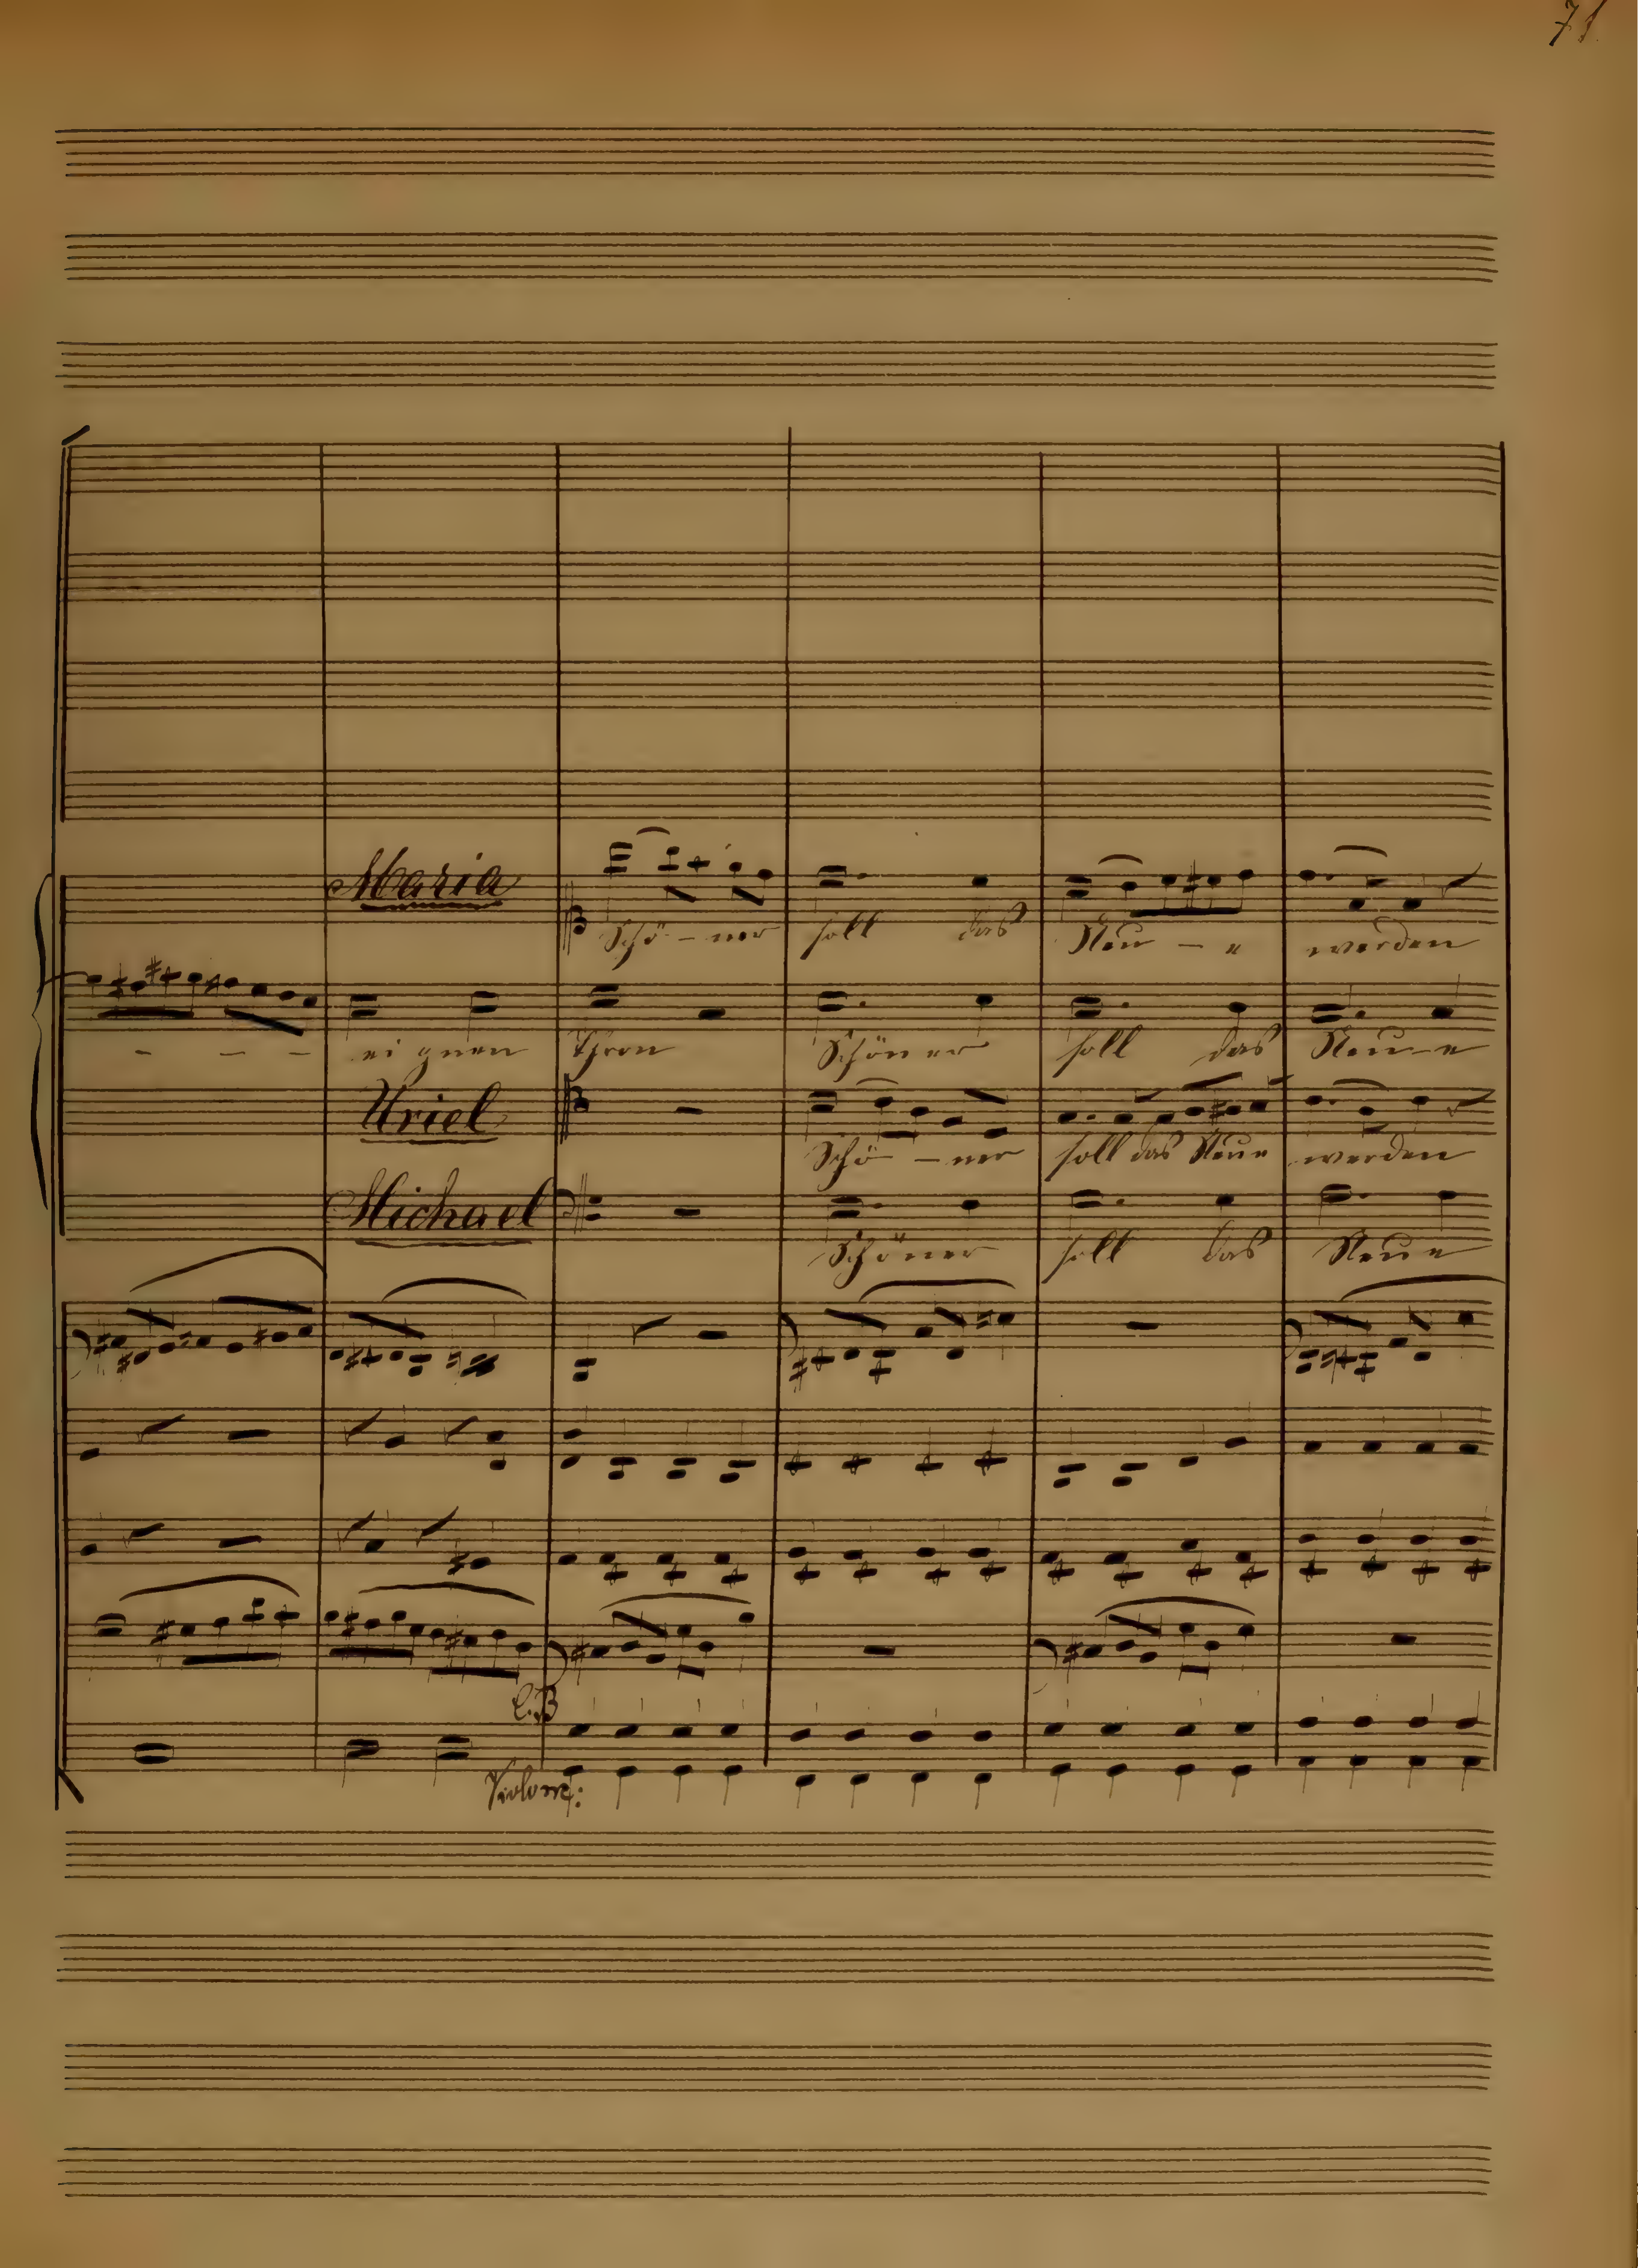 71
Maria
Schö - ner soll das Neu - e werden
- - - ei gnen Thron Schöner soll das Neu - e
Uriel
Schö - ner soll das Neue werden
Michael
Schöner soll das Neue
Violone: